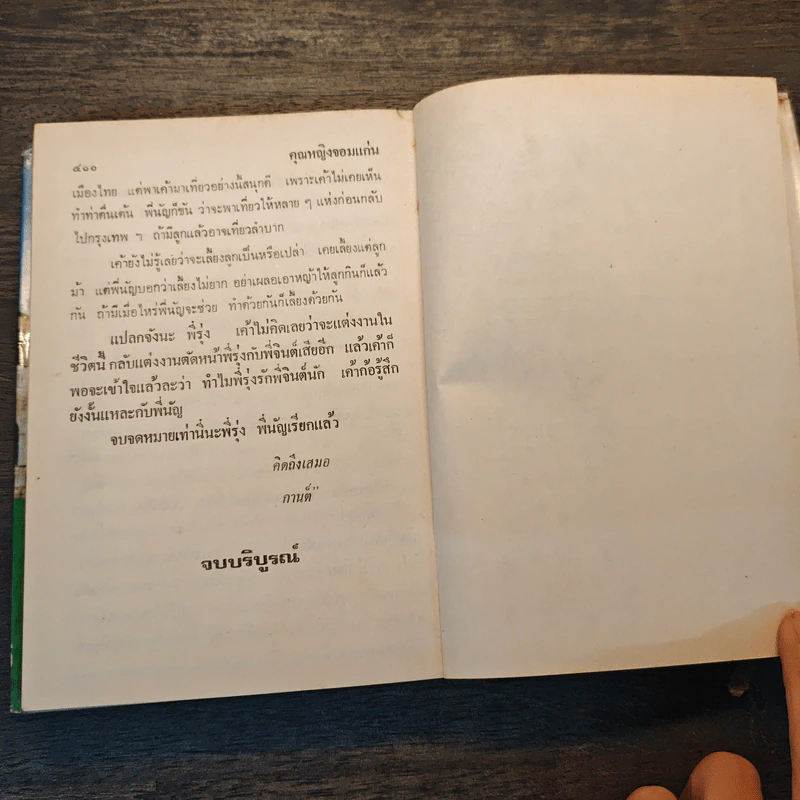 ๔๐๐
คุณหญิงจอมแก่น
เมืองไทย แต่พาเค้ามาเที่ยวอย่างนี้สนุกดี เพราะเค้าไม่เคยเห็น
ทำท่าตื่นเต้น พี่นัญก็ขัน ว่าจะพาเที่ยวให้หลาย ๆ แห่งก่อนกลับ
ไปกรุงเทพ ๆ ถ้ามีลูกแล้วอาจเที่ยวลำบาก
เค้ายังไม่รู้เล่ยว่าจะเลี้ยงลูกเป็นหรือเปล่า เคยเลี้ยงแต่ลูก
ม้า แต่พี่นัญบอกว่าเลี้ยงไม่ยาก อย่าเผลอเอาหญ้าให้ลูกกินก็แล้ว
กัน ถ้ามีเมื่อไหร่พี่นัญจะช่วย ทำด้วยกันก็เลี้ยงด้วยกัน
แปลกจังนะ พี่รุ่ง เค้าไม่คิดเลยว่าจะแต่งงานใน
ชีวิตนี้ กลับแต่งงานตัดหน้าพี่รุ่งกับพี่จินต์เสียอีก แล้วเค้าก็
พอจะเข้าใจแล้วละว่า ทำไมพี่รุ่งรักพี่จินต์นัก เค้าก้อรู้สึก
ยังงั้นแหละกับพี่นัญ
จบจดหมายเท่านี้นะพี่รุ่ง พี่นัญเรียกแล้ว
คิดถึงเสมอ
กานต์"
จบบริบูรณ์